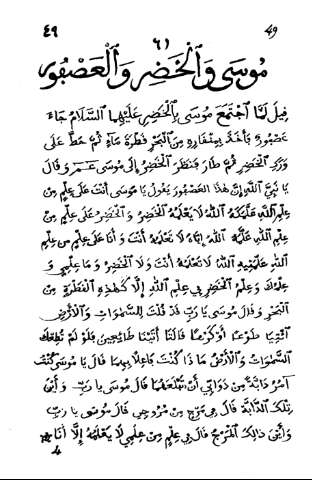 ٤٩ 49
٦١
مُوسَى وَالْخَضِر وَالْعَصْفُور
قِيلَ لَمَّا اجْتَمَعَ مُوسَى بِالْخَضِرِ عَلَيْهِمَا السَّلَامُ جَاءَ
عَصْفُورٌ فَأَخَذَ بِمِنْقَارِهِ مِنَ الْبَحْرِ قَطْرَةَ مَاءٍ ثُمَّ حَطَّ عَلَى
وَرِكِ الْخَضِرِ ثُمَّ طَارَ فَنَظَرَ الْخَضِرُ إِلَى مُوسَى وَقَالَ
يَا نَبِيَّ اللهِ إِنَّ هٰذَا الْعَصْفُورَ يَقُولُ يَا مُوسَى أَنْتَ عَلَى عِلْمٍ مِنْ
عِلْمِ اللهِ عَلَّمَكَهُ اللهُ لَا يَعْلَمُهُ الْخَضِرُ وَالْخَضِرُ عَلَى عِلْمٍ مِنْ
عِلْمِ اللهِ عَلَّمَهُ اللهُ إِيَّاهُ لَا تَعْلَمُهُ أَنْتَ وَأَنَا عَلَى عِلْمٍ مِنْ عِلْمِ
اللهِ عَلَّمَنِيهِ اللهُ لَا تَعْلَمُهُ أَنْتَ وَلَا الْخَضِرُ وَمَا عِلْمِي وَ
عِلْمُكَ وَعِلْمُ الْخَضِرِ فِي عِلْمِ اللهِ إِلَّا كَهٰذِهِ الْقَطْرَةِ مِنَ
الْبَحْرِ وَقَالَ مُوسَى يَا رَبِّ قَدْ قُلْتَ لِلسَّمٰوَاتِ وَالْأَرْضِ
ائْتِيَا طَوْعًا أَوْ كَرْهًا قَالَتَا أَتَيْنَا طَائِعِينَ فَلَوْ لَمْ تُطِعْكَ
السَّمٰوَاتُ وَالْأَرْضُ مَاذَا كُنْتَ فَاعِلًا بِهِمَا قَالَ يَا مُوسَى كُنْتُ
آمُرُ دَابَّةً مِنْ دَوَابِّي أَنْ تَبْلَعَهُمَا قَالَ مُوسَى يَا رَبِّ وَأَيْنَ
تِلْكَ الدَّابَّةُ قَالَ فِي مَرْجٍ مِنْ مُرُوجِي قَالَ مُوسَى يَا رَبِّ
وَأَيْنَ ذَالِكَ الْمَرْجُ قَالَ فِي عِلْمٍ مِنْ عِلْمِي لَا يَعْلَمُهُ إِلَّا أَنَا